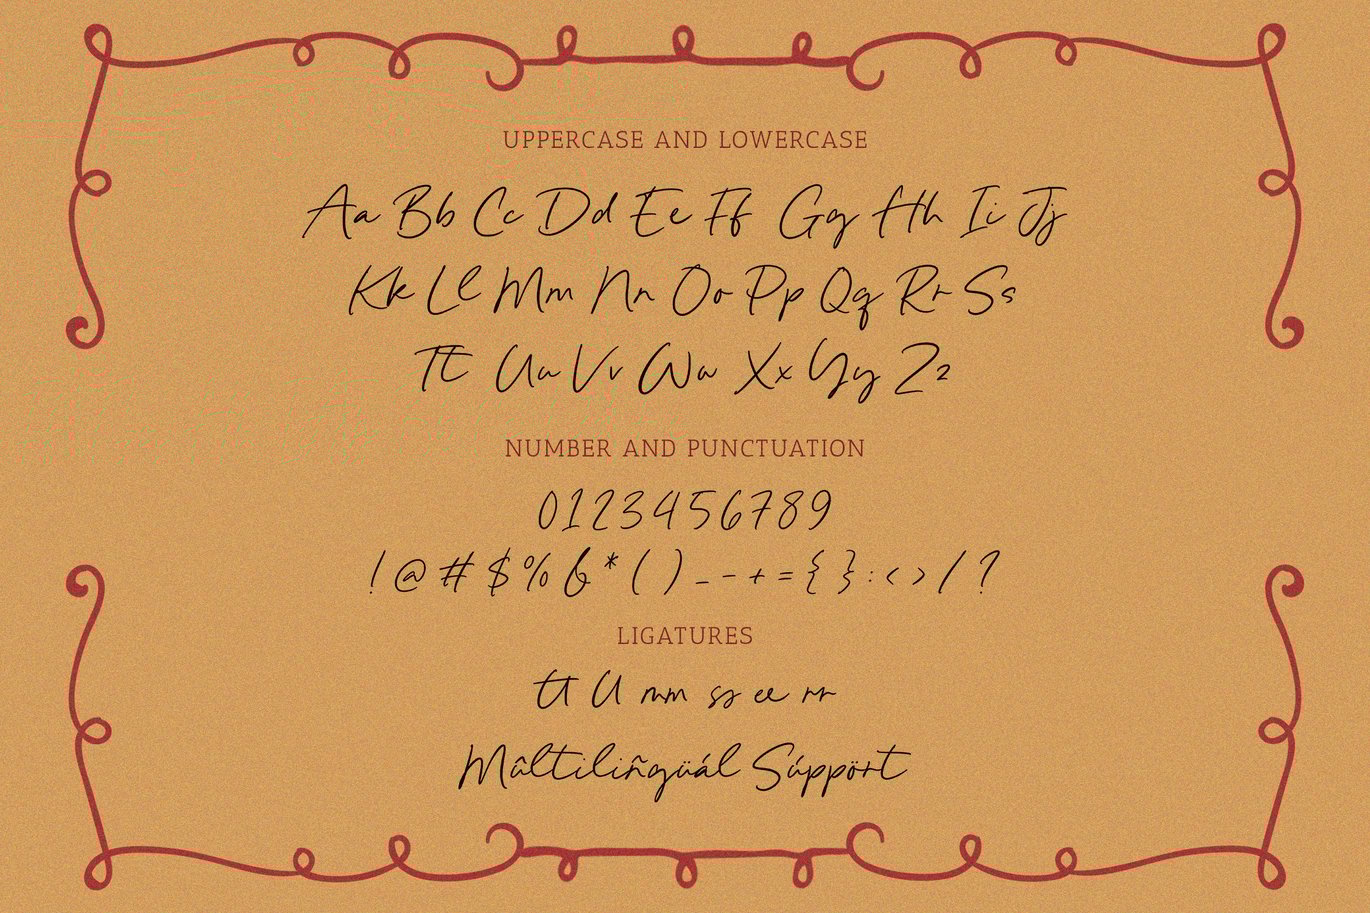 UPPERCASE AND LOWERCASE
Aa Bb Cc Dd Ee Ff Gg Hh Ii Jj
Kk Ll Mm Nn Oo Pp Qq Rr Ss
Tt Uu Vv Ww Xx Yy Zz
NUMBER AND PUNCTUATION
0123456789
!@#$%&*()_-+={}:<>/?
LIGATURES
tt ll mm ss ee rr
Mûltiliñgüál Súppört